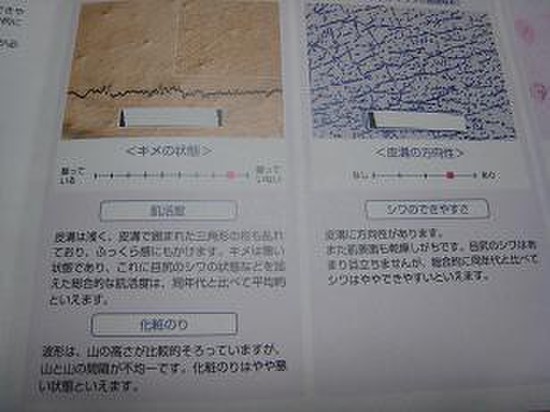 <キメの状態>
整って
いる
整って
いない
肌活度
皮溝は浅く、皮溝で囲まれた三角形の形も乱れ
ており、ふっくら感にもかけます。キメは悪い
状態であり、これに目尻のシワの状態などを加
えた総合的な肌活度は、同年代と比べて平均的
といえます。
化粧のり
波形は、山の高さが比較的そろっていますが、
山と山の間隔が不均一です。化粧のりはやや悪
い状態といえます。
<皮溝の方向性>
なし
あり
シワのできやすさ
皮溝に方向性があります。
また肌表面も乾燥しがちです。目尻のシワはあ
まり目立ちませんが、総合的に同年代と比べて
シワはややできやすいといえます。